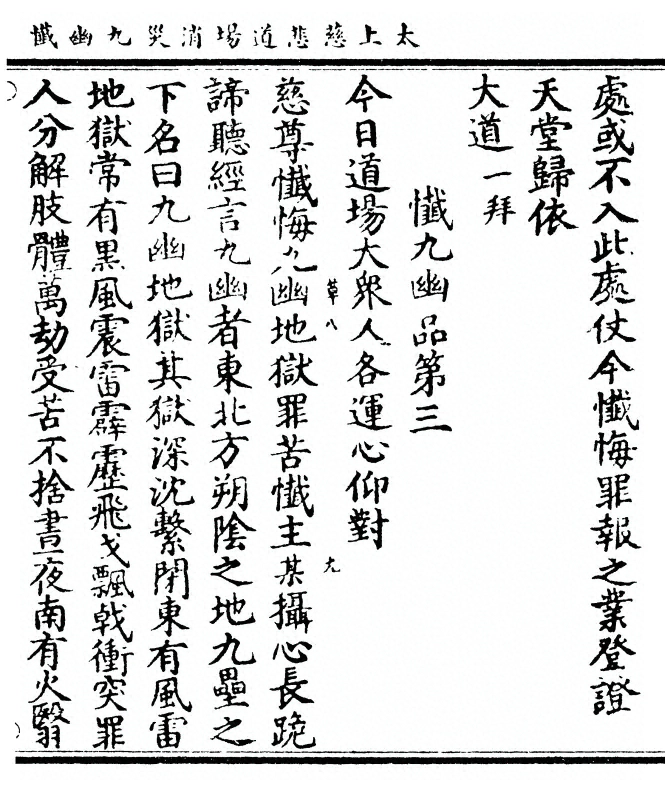 太上慈悲道場消災九幽懺
處或不入此處仗今懺悔罪報之業登證
天堂歸依
大道一拜
懺九幽品第三
今日道場大衆人各運心仰對
草八
九
慈尊懺悔九幽地獄罪苦懺主某攝心長跪
諦聽經言九幽者東北方朔陰之地九壘之
下名曰九幽地獄其獄深沈繫閉東有風雷
地獄常有黑風震雷霹靂飛戈飄戟衝突罪
人分解肢體萬劫受苦不捨晝夜南有火翳